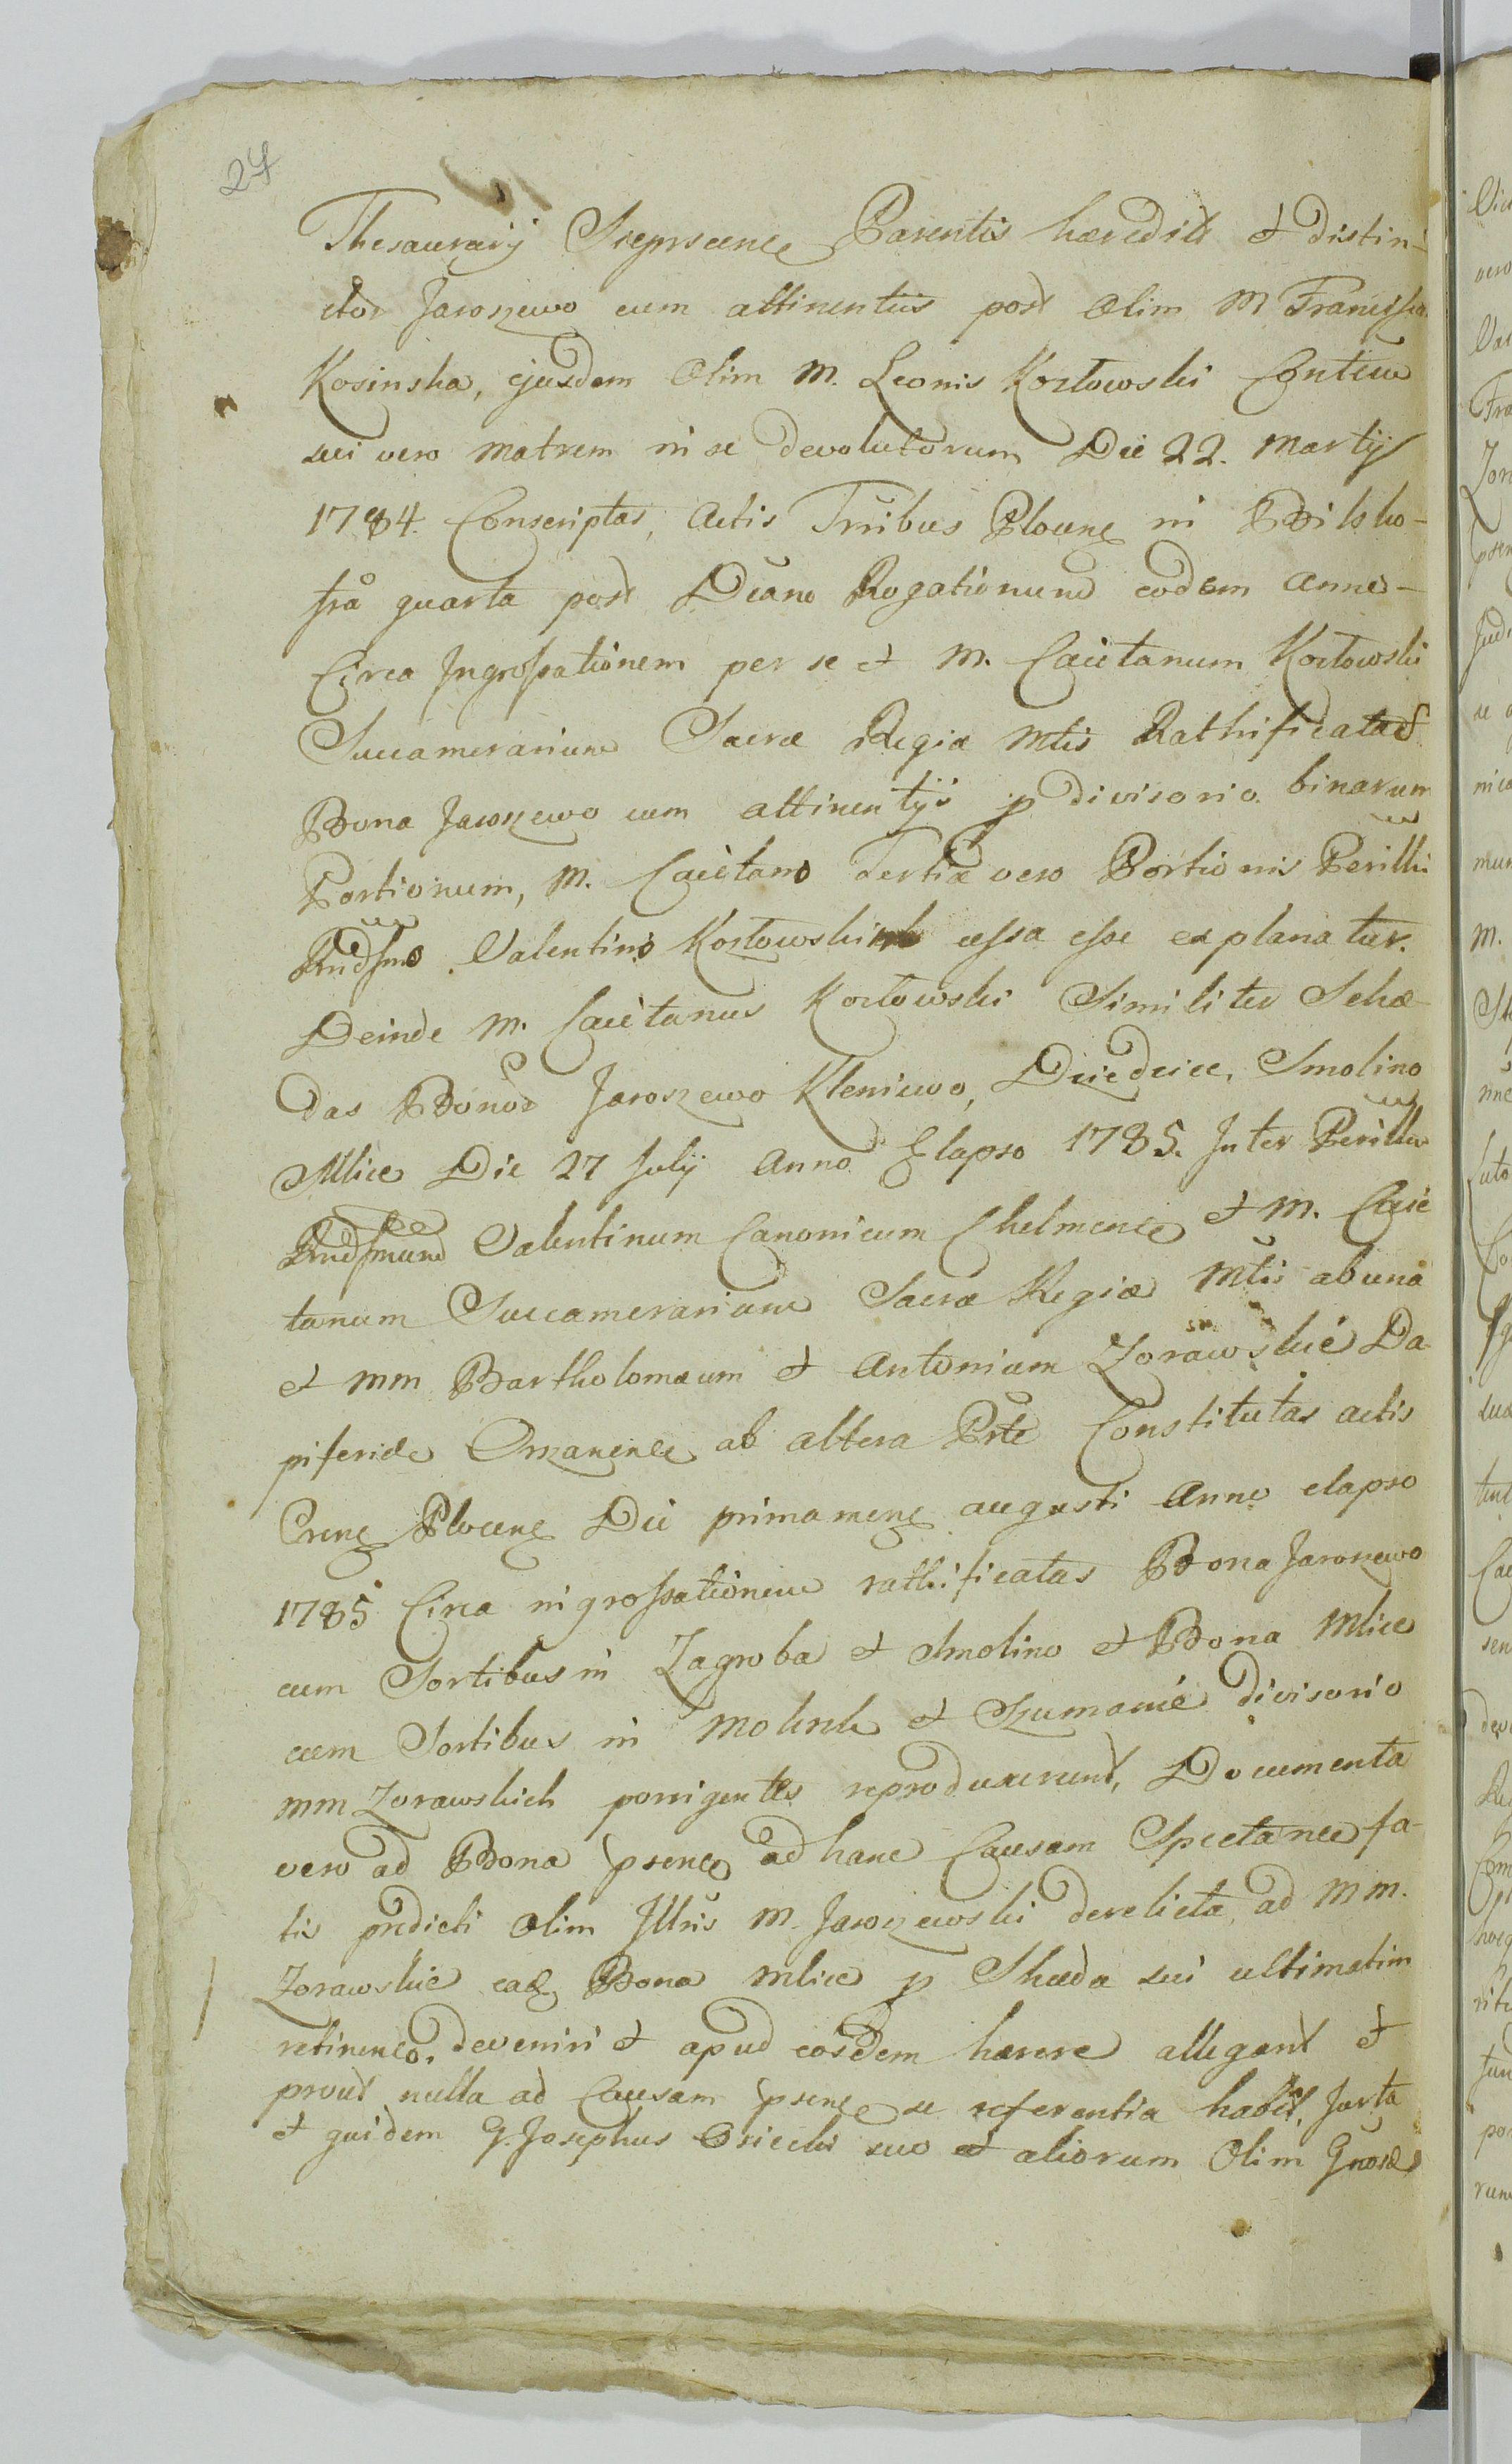 24
Thesaurarij Sieprscensis Parentis haeredit et distin-
ctor Jaroszewo cum attinentiis post Olim M Francisca
Kosinska, ejusdem Olim M. Leonis Kozłowski Contem
sui vero Matrem in se devolutorum Die 22. Martij
1784. Conscriptas, Actis Trribus Plocens in Bilsko-
fria quarta post Dcam Rogationum eodem Anno-
Circa Ingrossationem per se et M. Caietanum Kozłowski
Succamerarium Sacrae Regiae Mtis Rathificatas
Bona Jaroszewo cum attinentijs p divisorio binarum
Portionum, M. Caietano Tertiae vero Portionis Perilli
Rndssmo Valentino Kozłowskim cessa esse explanatur.
Deinde M. Caietanus Kozłowski Similiter Schae-
das Bonor Jaroszewo Kleniewo, Dziedzice, Smolino
Mlice Die 27 Julij Anno Elapso 1785. Inter Perillm
Rndssmum Valentinum Canonicum Chelmens et M. Caie
tanum Succamerarium Sacrae Regiae Mtis ab una
et MM Bartholomaeum et Antonium Zorawskie Da
piferide Orszanens ab altera Prte Constitutas actis
Crens Plocens Die prima mens augusti Anno elapso
1785 Circa ingrossationem rathificatas Bona Jaroszewo
cum Sortibus in Zagroba et Smolino et Bona Mlice
cum Sortibus in Mokrsk et Szumanie divisorio
MM Zorawskich porrigentes reproduxerunt, Documenta
vero ad Bona psens ad hanc Causam Spectance fa-
tis prdicti Olim Illris M. Jaroszewski derelicta, ad MM.
Zorawskie eaq Bona Mlice p Shaeda sui ultimatim
retinenco. deveniri et apud eosdem haerere allegant et
prout nulla ad Causam psens se referentia habet, Jurta
et quidem G. Josephus Osiecki suo et aliorum Olim Gnose